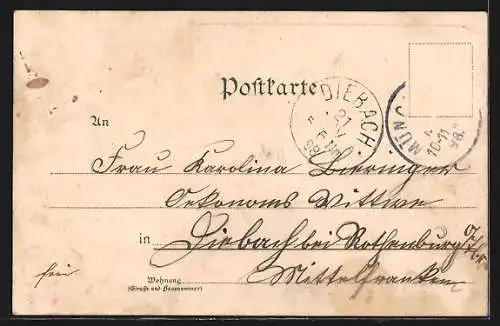 Postkarte
DIEBACH.
MÜN
10-11
98.
An
Frau Karolina Bieringer
Oekonoms Wittwe
in Diebach bei Rothenburg o/T.
frei
Mittelfranken
Wohnung
(Straße und Hausnummer)